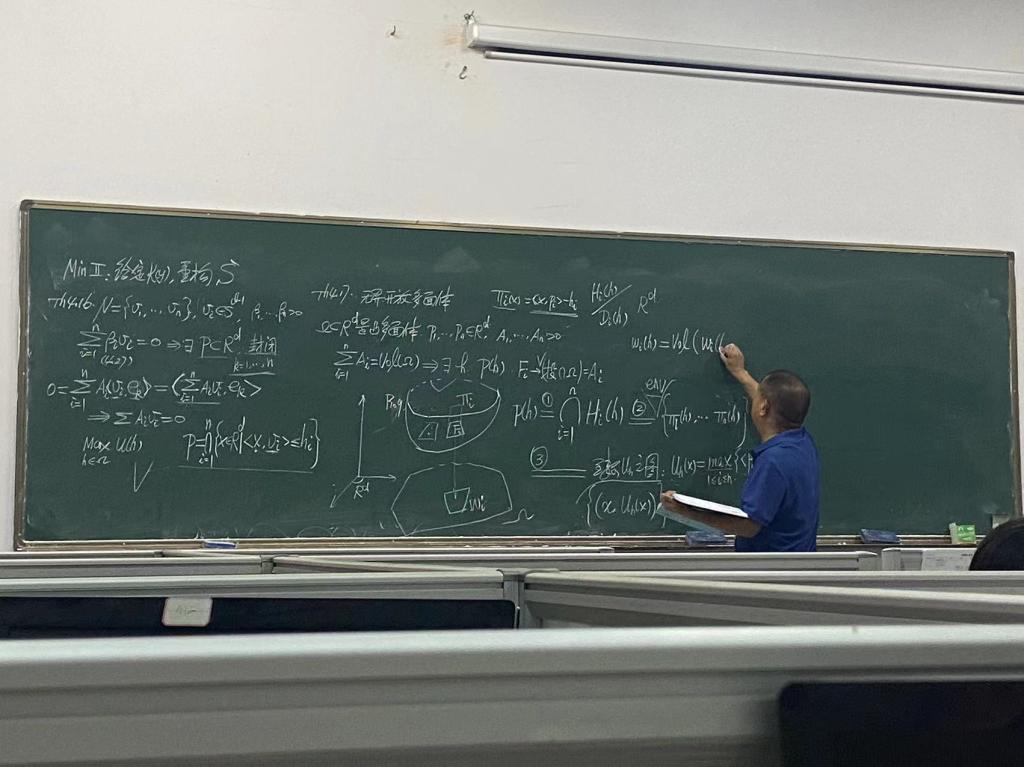 Min II: 给定K(v), 重构 S
Th4.16. N={v₁, ..., vₙ}, vᵢ∈S^{d-1}, βᵢ, ..., βₙ>0
∑_{i=1}^{n} βᵢvᵢ=0 ⇒ ∃ P⊂R^d, 封闭
(4.22)
k=1,...,n
0=∑_{i=1}^{n} Aᵢ<vᵢ, e_k>=<∑_{i=1}^{n} Aᵢvᵢ, e_k>
⇒ ∑Aᵢvᵢ=0
Max U(h)
h∈Ω
P=∩_{i=1}^{n}{x∈R^d|<x, vᵢ>≤hᵢ}
Th4.17. 无界开放多面体
Ω∈R^d是凸多面体. P₁, ...Pₙ∈R^d, A₁, ..., Aₙ>0
∑_{i=1}^{n} Aᵢ=Vol(Ω) ⇒ ∃ h. P(h). Fᵢ
∩Ω)=Aᵢ
Proj
πᵢ
Fᵢ
R^d
Wᵢ
Ω
πᵢ(x)=<x, pᵢ>-hᵢ
Hᵢ(h)
Dᵢ(h)
R^d
wᵢ(h)=Vol(Wᵢ(
P(h) ① = ∩_{i=1}^{n} Hᵢ(h) ② = env{π₁(h), ... πₙ(h)}
③
U_h之图: U_h(x)=max_{1≤i≤n}{<
{(x, U_h(x))